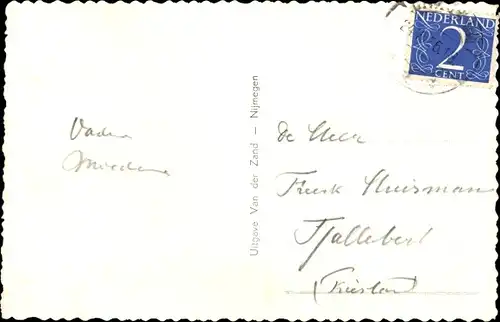 NEDERLAND
2
CENT
Vader
Moeder
Uitgave Van der Zand — Nijmegen
de Heer
Freerk Huisman
Tjallebert
Friesland